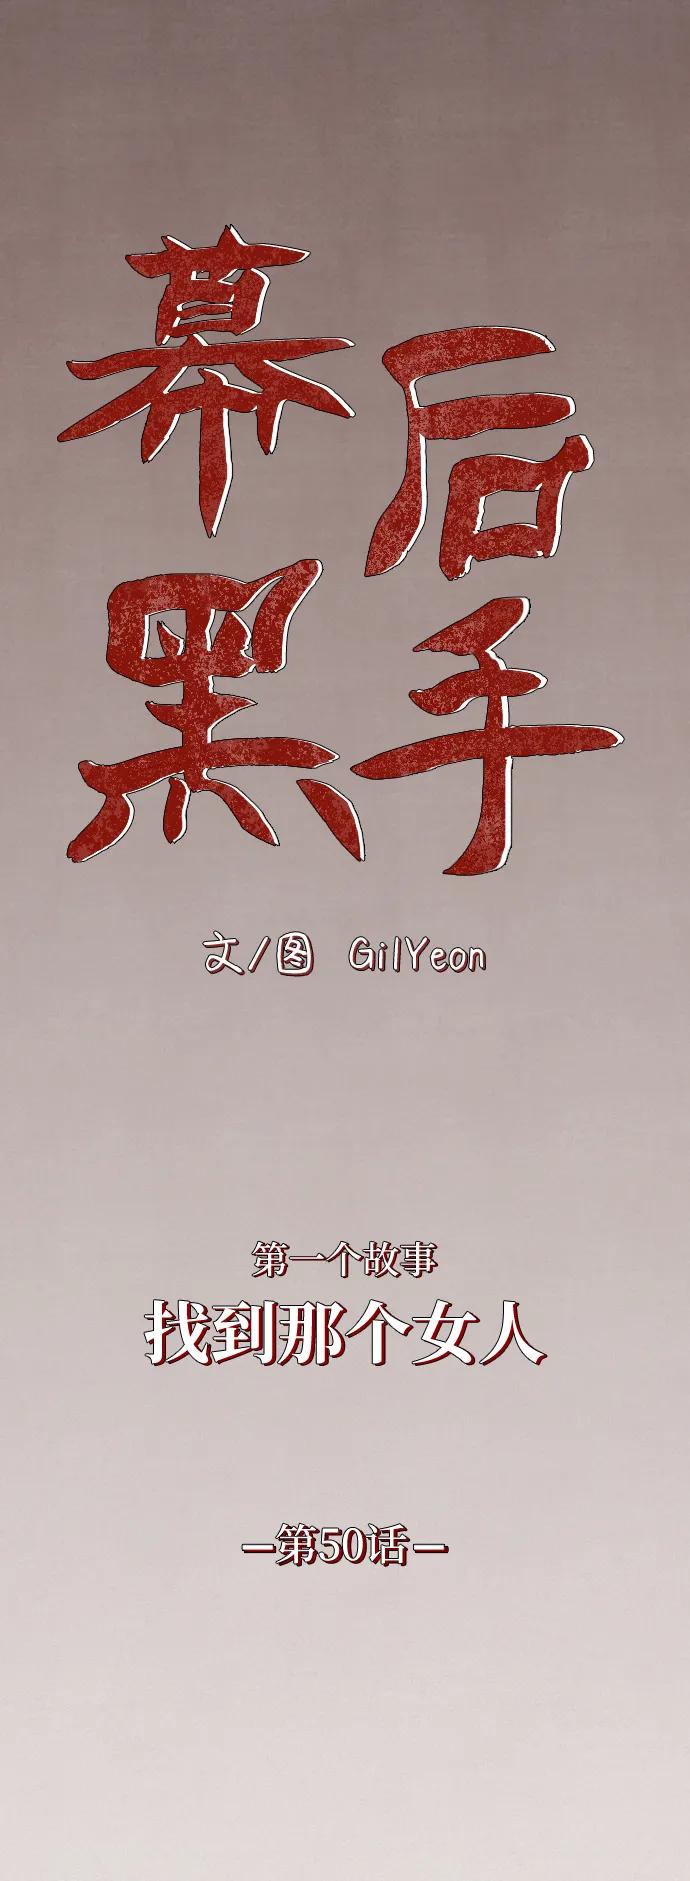 幕后
黑手
文/图 GilYeon
第一个故事
找到那个女人
–第50话–